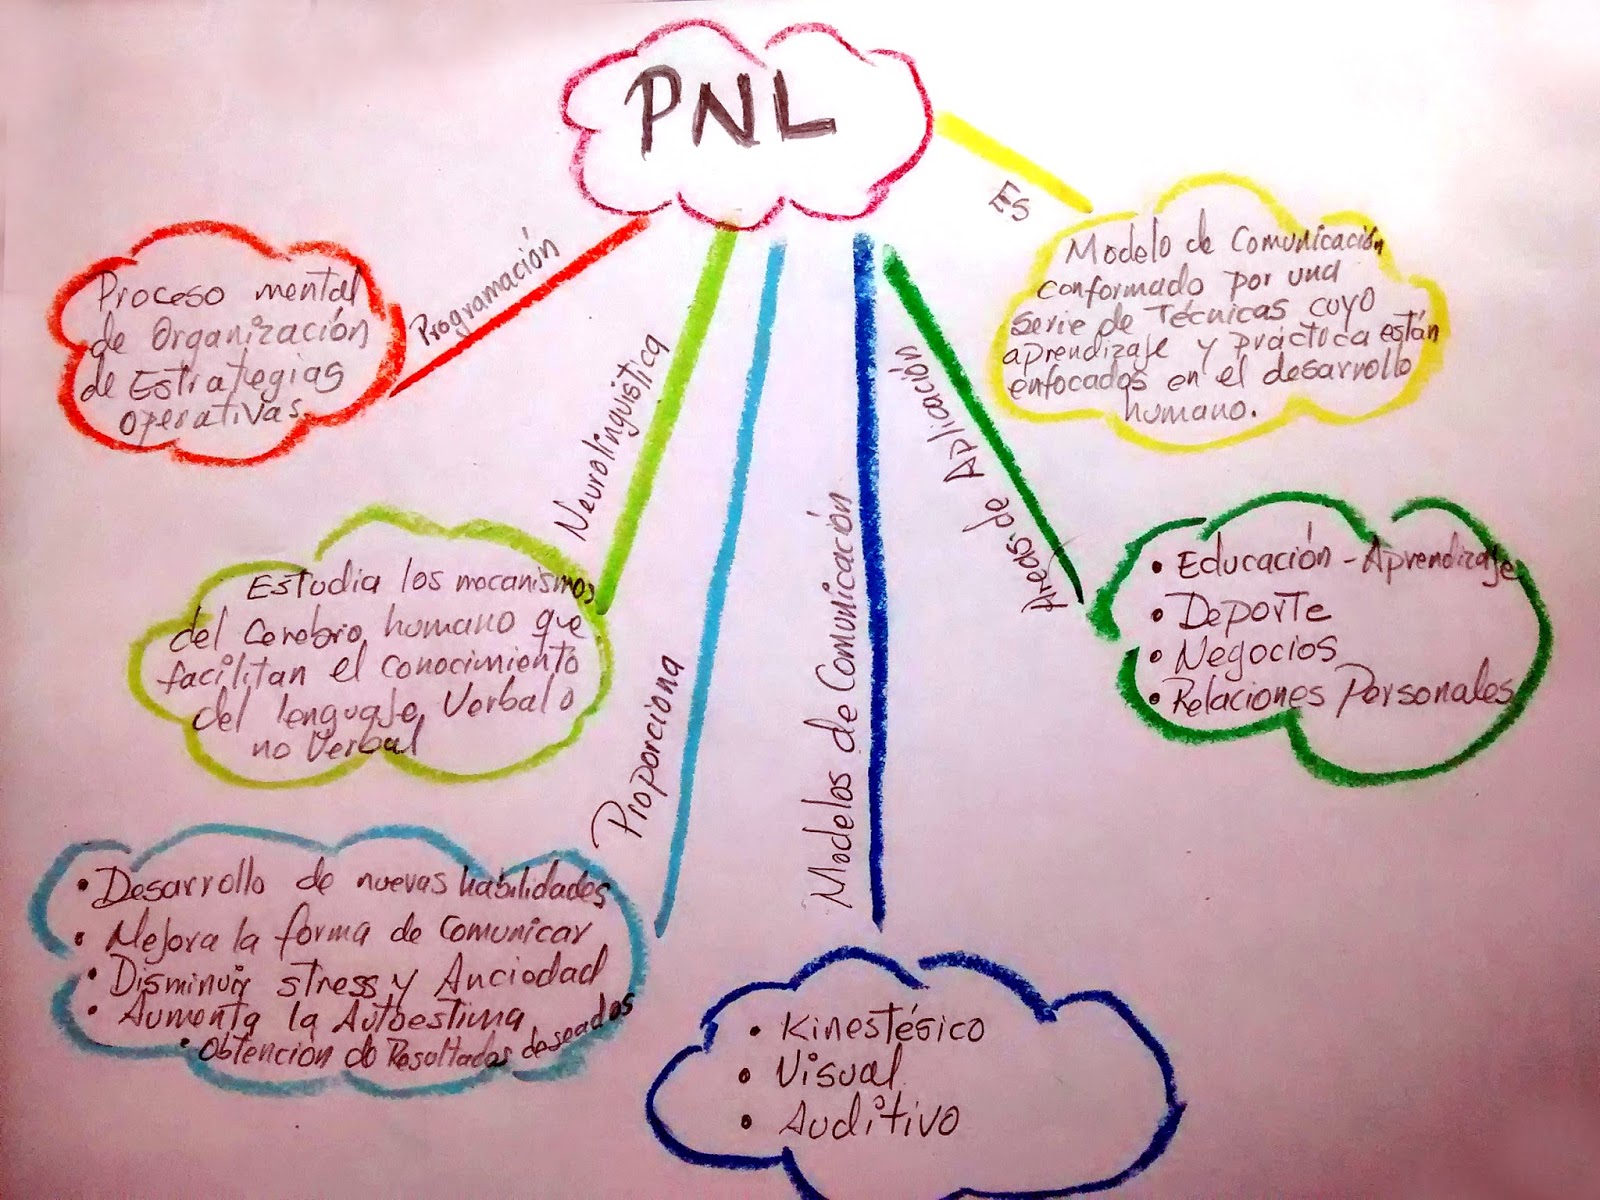 PNL
Es
Modelo de Comunicación
conformado por una
serie de Técnicas cuyo
aprendizaje y práctica están
enfocados en el desarrollo
humano.
Programación
Proceso mental
de Organización
de Estrategias
operativas.
Neurolinguística
Estudia los mecanismos
del Cerebro humano que
facilitan el conocimiento
del lenguaje Verbal o
no Verbal
Proporciona
• Desarrollo de nuevas habilidades
• Mejora la forma de comunicar
• Disminuir stress y Anciedad
• Aumenta la Autoestima
• Obtención de Resultados deseados
Modelos de Comunicación
• Kinestésico
• Visual
• Auditivo
Areas de Aplicación
• Educación - Aprendizaje
• Deporte
• Negocios
• Relaciones Personales